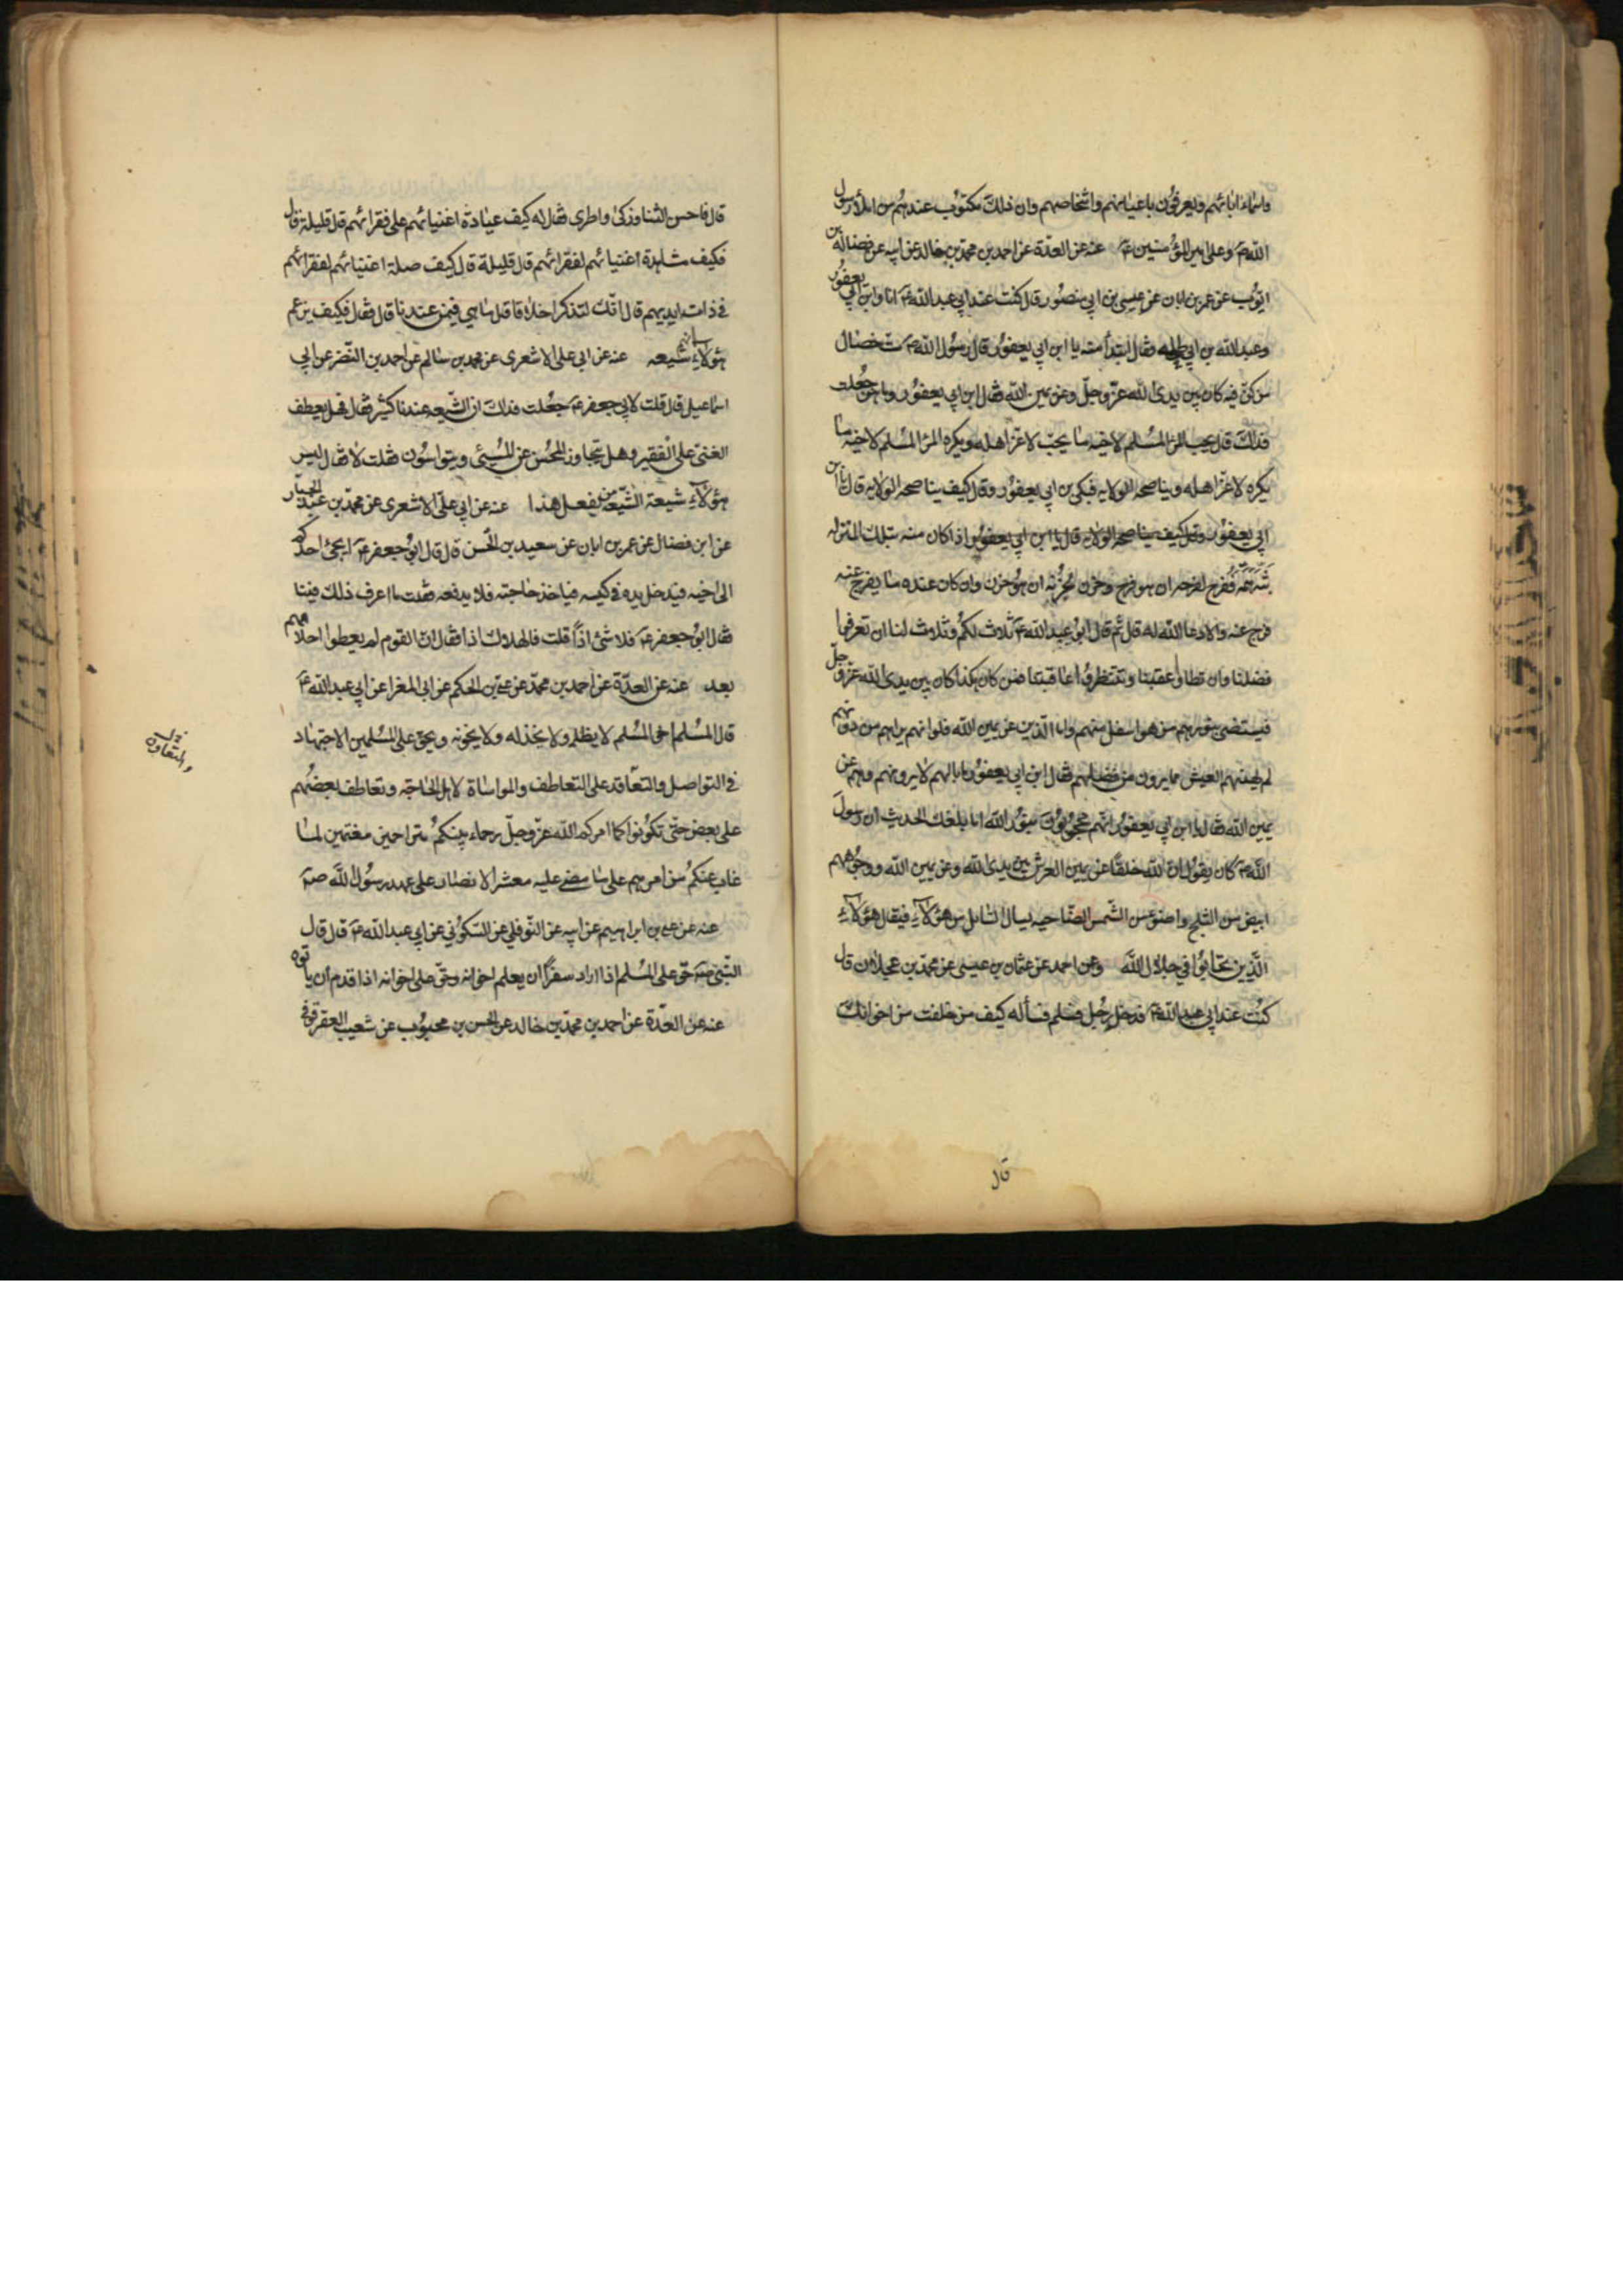 واسماء ابائهم ويعرفون باعيانهم واشخاصهم وان ذلك مكتوب عندهم من املأ رسول
الله ص وعلى امير المؤمنين ع عنه عن العدة عن احمد بن محمد بن خالد عن ابيه عن فضالة بن
ايوب عن عمر بن ابان عن عيسى بن ابى منصور قال كنت عند ابي عبد الله ع انا وابن ابي يعفور
وعبد الله بن ابي طلحه فقال ابتدأ منه يا ابن ابي يعفور قال رسول الله ص ست خصال
من كن فيه كان بين يدى الله عز وجل وعن يمين الله فقال ابن ابي يعفور وما هن جعلت
فداك قال يحب المرء المسلم لاخيه ما يحب لاعز اهله ويكره المرء المسلم لاخيه ما
يكره لاعز اهله ويناصحه الولايه فبكى بن ابي يعفور وقال كيف يناصحه الولايه قال يا ابن
ابي يعفور وقال كيف يناصحه الولايه قال يا ابن ابي يعفور اذا كان منه بتلك المنزله
بثه همه ففرح لفرحه ان هو فرح وحزن لحزنه ان هو حزن وان كان عنده ما يفرج عنه
فرج عنه والا دعا الله له قال ثم قال ابو عبد الله ع ثلاث لكم وثلاث لنا ان تعرفوا
فضلنا وان تطاوا عقبنا وتنتظروا عاقبتنا فمن كان هكذا كان بين يدى الله عز وجل
فيستضئ بنورهم من هو اسفل منهم واما الذين عن يمين الله فلو انهم يراهم من دونهم
لم يهنهم العيش مما يرون من فضلهم فقال ابن ابي يعفور ما بالهم لا يرونهم وهم عن
يمين الله فقال يا ابن ابي يعفور انهم محجوبون بنور الله اما بلغك الحديث ان رسول
الله ص كان يقول ان لله خلقا عن يمين العرش بين يدى الله وعن يمين الله ووجوههم
ابيض من الثلج واضوء من الشمس الضاحيه يسال السائل من هؤلاء فيقال هؤلاء
الذين تحابوا في جلال الله وعن احمد عن عثمان بن عيسى عن محمد بن عجلان قال
كنت عند ابي عبد الله ع فدخل رجل فسلم فسأله كيف من خلفت من اخوانك
قال
قال فاحسن الثنا وزكى واطرى فقال له كيف عيادة اغنيائهم على فقرائهم قال قليلة قال
فكيف مشاهدة اغنيائهم لفقرائهم قال قليلة قال كيف صلة اغنيائهم لفقرائهم
في ذات ايديهم قال انك لتذكر اخلاقا قل ما هي فيمن عندنا قال فقال فكيف يزعم
هؤلاء انهم شيعه عنه عن ابي علي الاشعرى عن محمد بن سالم عن احمد بن النضر عن ابي
اسماعيل قال قلت لابي جعفر ع جعلت فداك ان الشيعه عندنا كثير فقال فهل يعطف
الغني على الفقير وهل يتجاوز المحسن عن المسيئى ويتواسون فقلت لا فقال ليس
هؤلاء شيعة الشيعة من يفعل هذا عنه عن ابي علي الاشعرى عن محمد بن عبد الجبار
عن ابن فضال عن عمر بن ابان عن سعيد بن الحسن قال قال ابو جعفر ع ايجئ احدكم
الى اخيه فيدخل يده في كيسه فياخذ حاجته فلا يدفعه فقلت ما اعرف ذلك فينا
فقال ابو جعفر ع فلا شئ اذا قلت فالهلاك اذا فقال ان القوم لم يعطوا احلامهم
بعد عنه عن العدة عن احمد بن محمد عن علي بن الحكم عن ابى المغرا عن ابي عبد الله ع
قال المسلم اخو المسلم لا يظلمه ولا يخذله ولا يخونه ويحق على المسلمين الاجتهاد
في التواصل والتعاقد على التعاطف والمواساة لاهل الحاجة وتعاطف بعضهم
والتعاون
على بعض حتى تكونوا كما امركم الله عز وجل رحماء بينكم متراحمين مغتمين لما
غاب عنكم من امرهم على ما مضى عليه معشر الانصار على عهد رسول الله ص
عنه عن علي بن ابراهيم عن ابيه عن النوفلي عن السكوني عن ابي عبد الله ع قال قال
النبي ص حق على المسلم اذا اراد سفرا ان يعلم اخوانه وحق على اخوانه اذا قدم ان ياتوه
عنه عن العدة عن احمد بن محمد بن خالد عن الحسن بن محبوب عن شعيب العقرقوفي